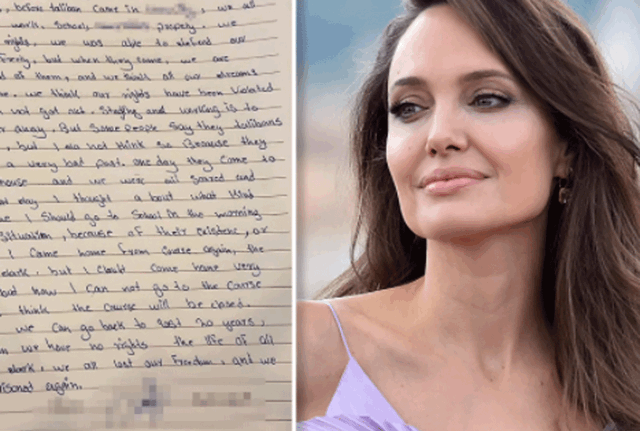 , before taliban came in , we all
work, School, properly. we
rights, we was able to defend our
freely, but when they come, we are
of them, and we think all our dreams
we think our rights have been violated
not get out. Staying and working is to
away, But Some People Say they talibans
, but I do not think so Because they
a very bad past. one day they Came to
house and we were all scared and
day I thought about what kind
I Should go to School in the morning
Situation, because of their existent, or
I came home from course again, the
dark, but I Could Come home very
but now I Can not go to the course
think the course will be closed.
we Can go back to last 20 years,
we have no rights the life of all
dark, we all lost our Freedom, and we
again.